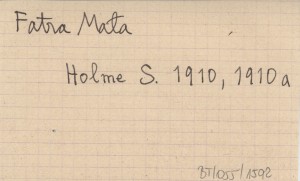 Fatra Mała
Holme S. 1910, 1910a
BT/055/1592